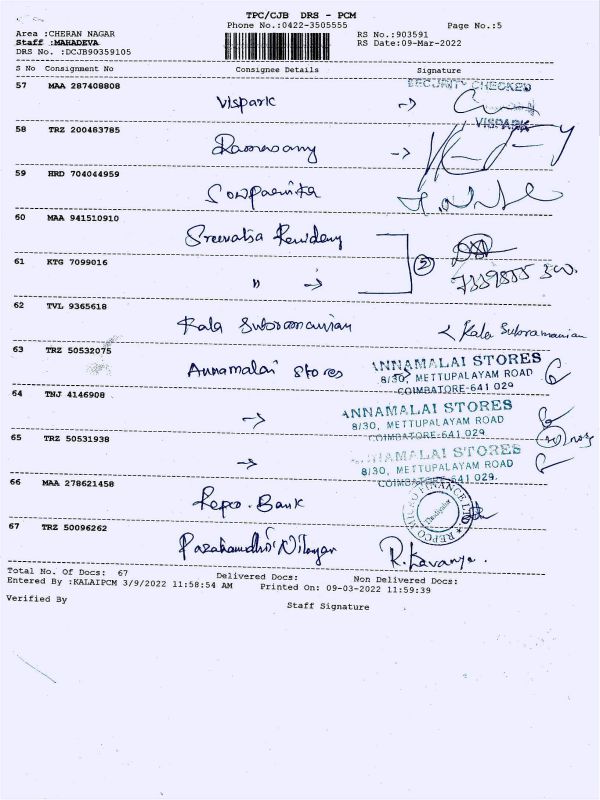 TPC/CJB DRS - PCM
Phone No.:0422-3505555 Page No.:5
Area :CHERAN NAGAR RS No.:903591
Staff :MAHADEVA RS Date:09-Mar-2022
DRS No. :DCJB90359105
S No Consignment No Consignee Details Signature
57 MAA 287408808 SECURITY CHECKED
Vispark →
VISPARK
58 TRZ 200483785
Ramasamy →
59 HRD 704044959
Sowparnika
60 MAA 941510910
Sreevatsa Residency
61 KTG 7099016 2
" →
62 TVL 9365618
Kala Subramanian < Kala Subramanian
63 TRZ 50532075
Annamalai Stores → ANNAMALAI STORES
8/30, METTUPALAYAM ROAD
COIMBATORE-641 029
64 TNJ 4146908
→ ANNAMALAI STORES
8/30, METTUPALAYAM ROAD
COIMBATORE-641 029.
65 TRZ 50531938
→ ANNAMALAI STORES
8/30, METTUPALAYAM ROAD
COIMBATORE-641 029.
66 MAA 278621458
Repco Bank
REPCO MICRO FINANCE LTD
67 TRZ 50096262
R. Kavanya.
Total No. Of Docs: 67 Delivered Docs: Non Delivered Docs:
Entered By :KALAIPCM 3/9/2022 11:58:54 AM Printed On: 09-03-2022 11:59:39
Verified By
Staff Signature